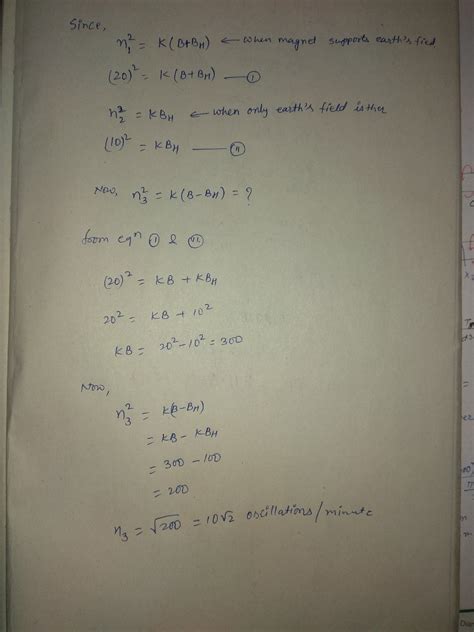 Since,
n₁² = K(B+B_H) ← when magnet supports earth's field
(20)² = K(B+B_H) — (I)
n₂² = KB_H ← when only earth's field is ther
(10)² = KB_H — (II)
Now, n₃² = K(B-B_H) = ?
from eqⁿ (I) & (II)
(20)² = KB + KB_H
20² = KB + 10²
KB = 20² - 10² = 300
Now,
n₃² = K(B-B_H)
= KB - KB_H
= 300 - 100
= 200
n₃ = √200 = 10√2 oscillations/minute